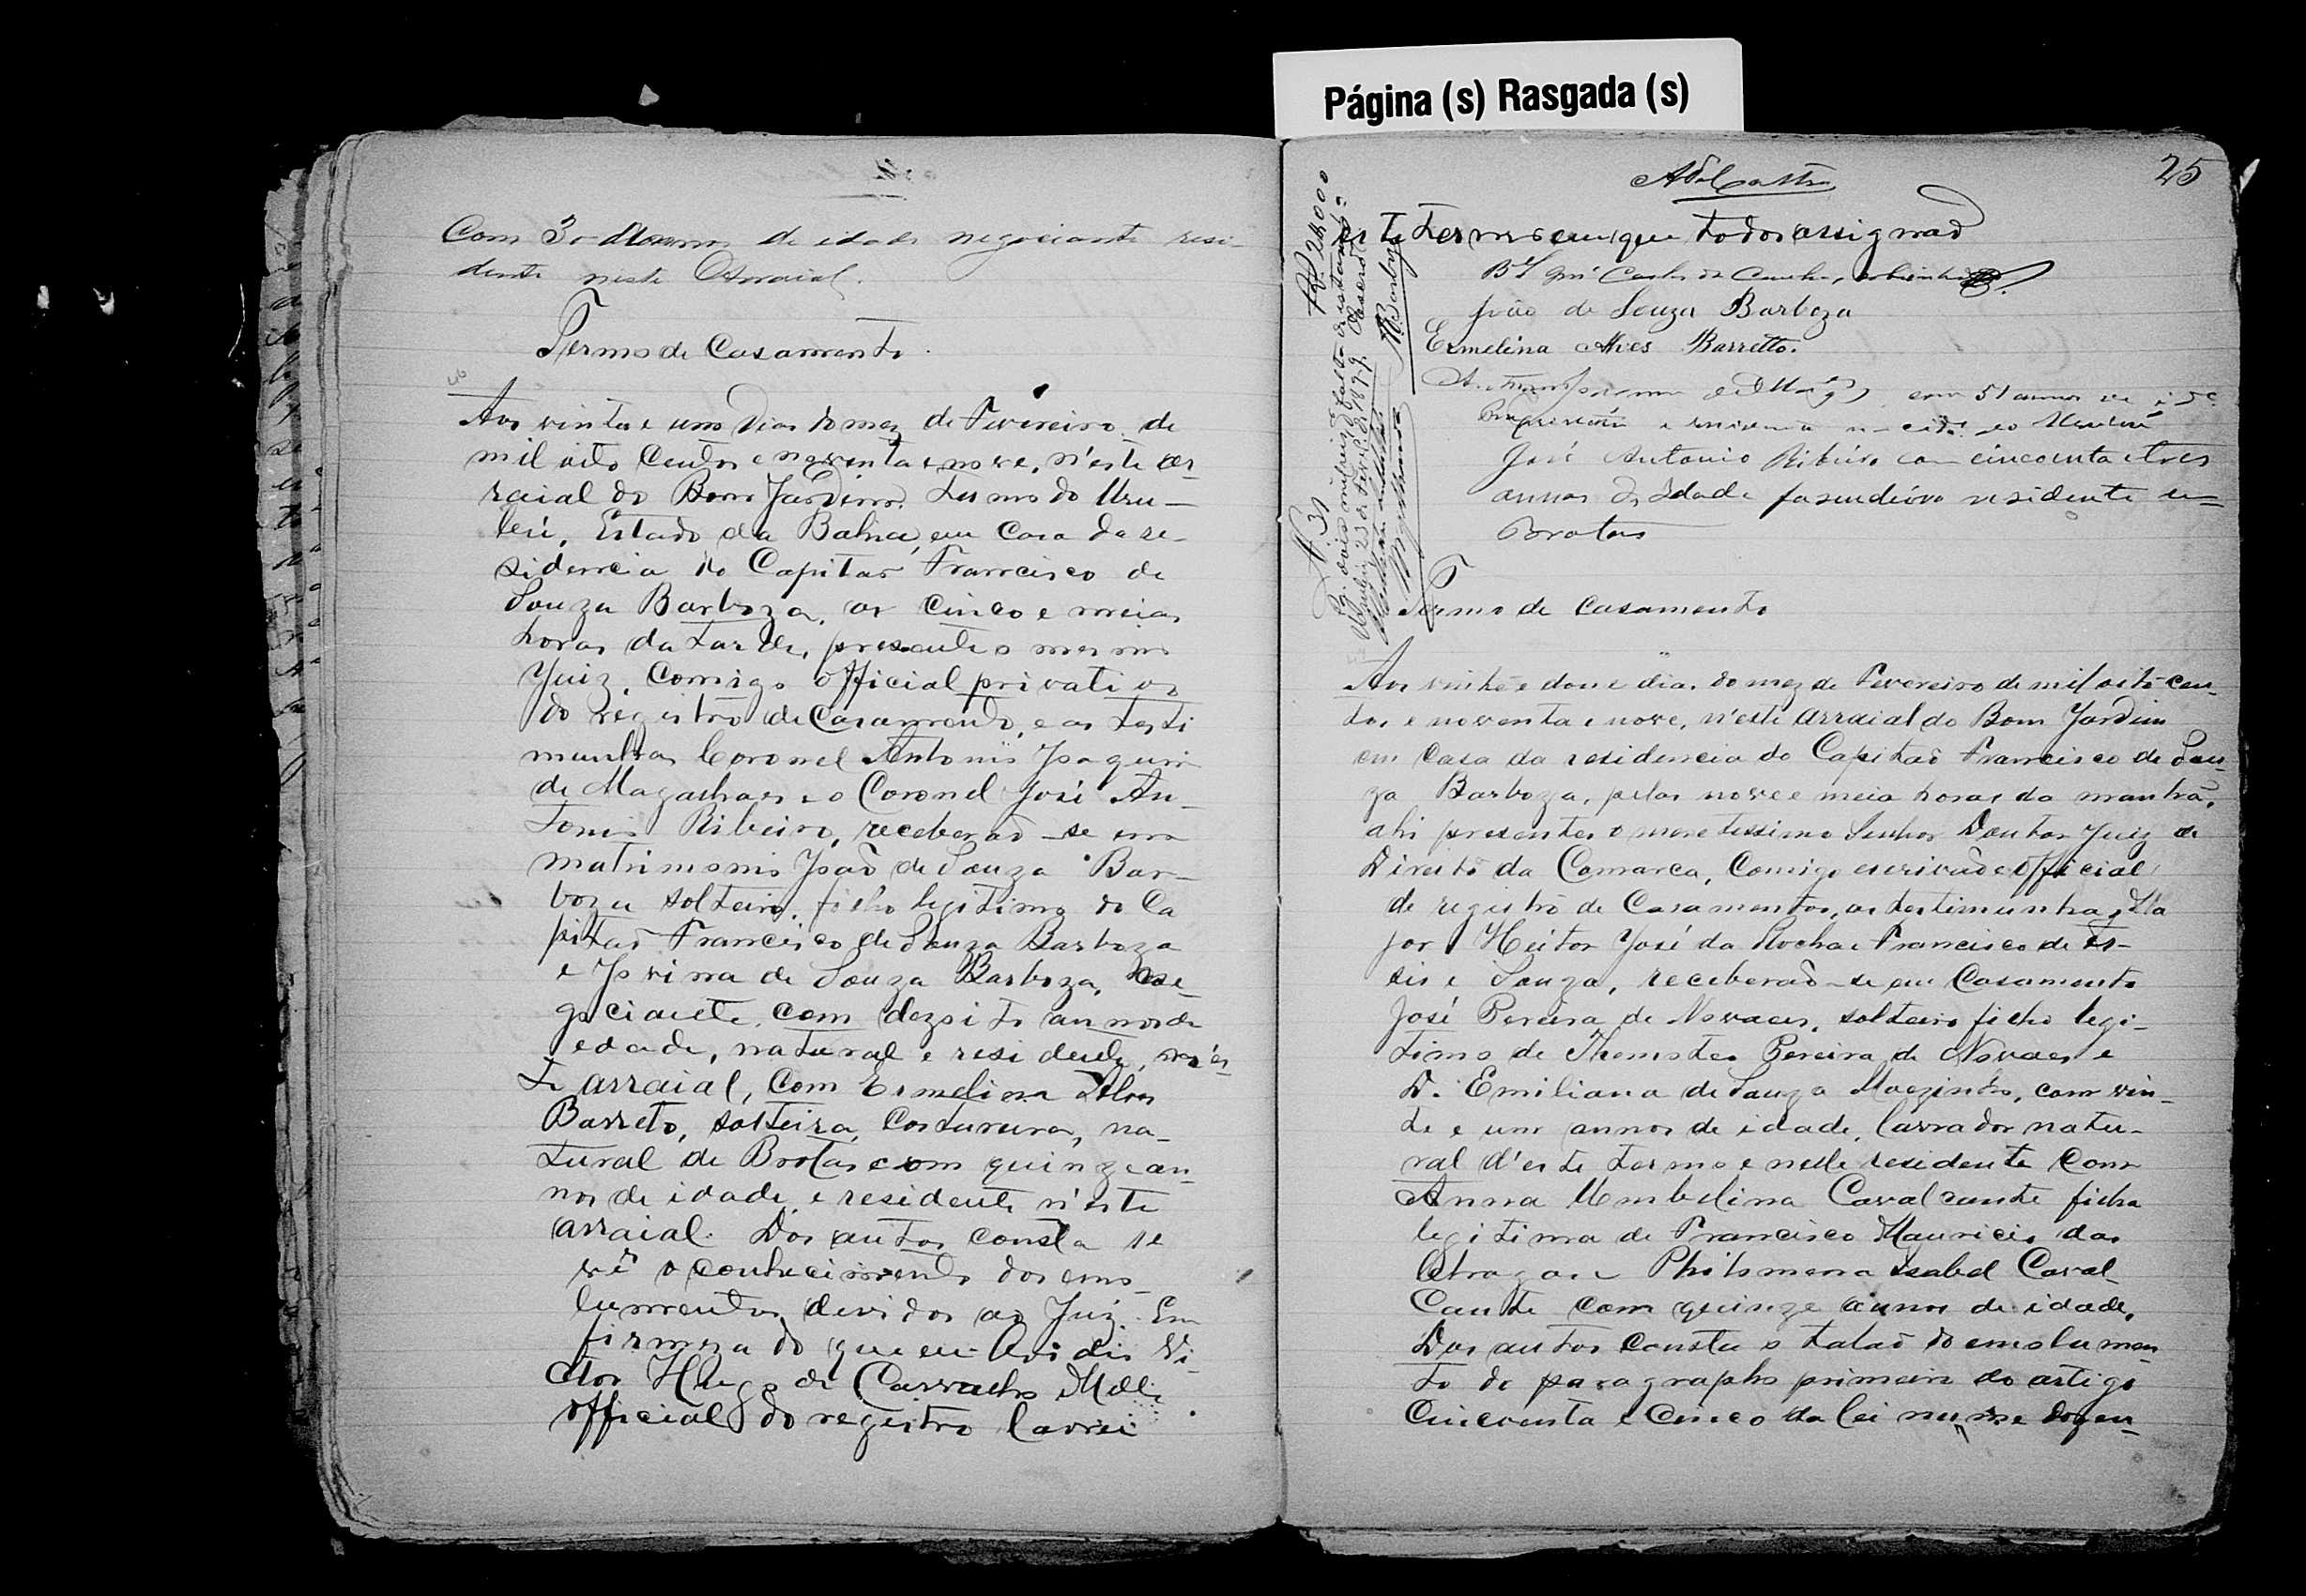 Com 30 annos de idade negociante resi-
dente neste Arraial.
Termo de Casamento.
Aos vinte e um dias do mez de Fevereiro de
mil oito centos e noventa e nove, n'este ar
raial do Bom Jardim, termo do Uru-
bú, Estado da Bahia, em casa da re-
sidencia do Capitaõ Francisco de
Souza Barboza, as cinco e meia
horas da tarde, presente o mesmo
Juiz, comigo official privativo
do registro de Casamento, e as testi
munhas Coronel Antonio Joaquim
de Magalhaes e o Coronel José An-
tonio Ribeiro, receberaõ-se em
matrimonio Joaõ de Souza Bar-
boza solteiro, filho legitimo do Ca
pitaõ Francisco de Souza Barboza
e Jovina de Souza Barboza, ne-
gociante, com dezoito annos de
edade, natural e residente, n'es-
te arraial, com Ermelina Alves
Barreto, solteira, costureira, na-
tural de Brotas com quinze an-
nos de idade, e residente n'este
arraial. Dos autos consta se
vê o conhecimento dos emo-
lumentos devidos ao Juiz. Em
firmeza do que eu Vi-
ctor Hugo de Carvalho
official do registro lavrei
Página (s) Rasgada (s)
25
este termo em que todos assignaõ
João de Souza Barboza
Ermelina Alves Barretto.
com 51 annos de
José Antonio Ribeiro com cincoenta e tres
annos de Idade fasendeiro residente em
Brotas
N. 31
Termo de Casamento
Aos vinte e dous dias do mez de Fevereiro de mil oito cen-
tos e noventa e nove, n'este arraial do Bom Jardim
em casa da residencia do Capitaõ Francisco de Sou-
za Barboza, pelas nove e meia horas da manhã,
ahi presentes o Senhor Doutor Juiz de
Direito da Comarca, Comigo escrivaõ e official
de registro de Casamentos, as testimunhas Ma
jor Heitor José da Rocha e Francisco de As-
sis e Souza, receberaõ-se em Casamento
José Pereira de Novaes, solteiro filho legi-
timo de Pereira de Novaes e
D. Emiliana de Souza com vin-
te e um annos de idade, lavrador natu-
ral d'este termo e nelle residente com
Anna Umbelina Cavalcante filha
legitima de Francisco Mauricio das
Chagas e Philomena Isabel Caval-
cante com quinze annos de idade,
Dos autos consta o talaõ do emolumen-
to do paragrapho primeiro do artigo
Cincoenta e cinco da lei dozen-